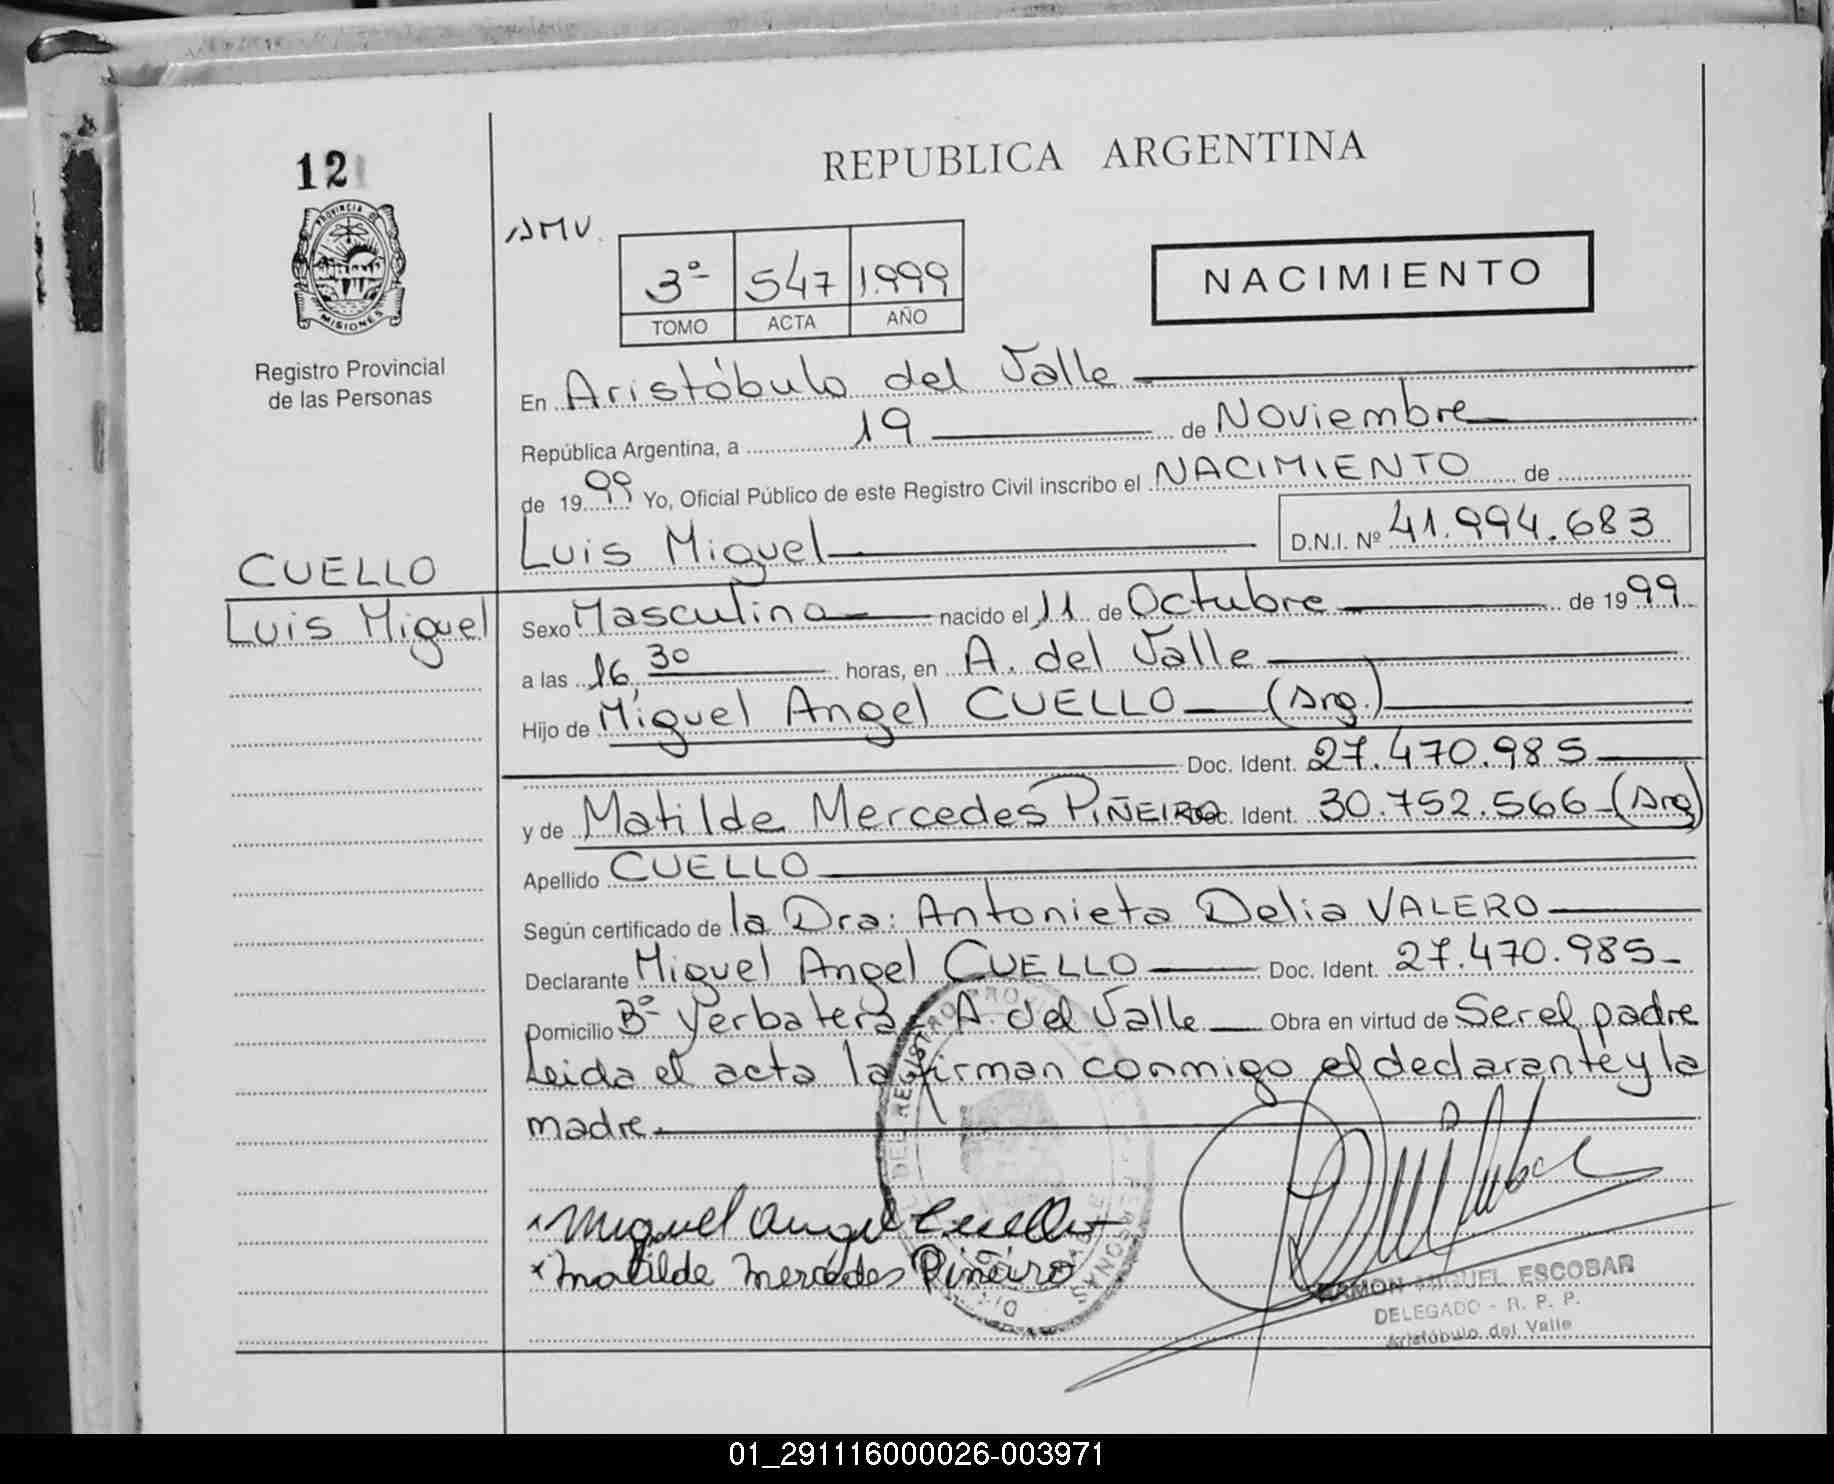 REPUBLICA ARGENTINA
12
PROVINCIA DE
MISIONES
Registro Provincial
de las Personas
AMV.
3º 547 1.999
TOMO ACTA AÑO
NACIMIENTO
En Aristóbulo del Valle
República Argentina, a 19 de Noviembre
de 1999 Yo, Oficial Público de este Registro Civil inscribo el NACIMIENTO de
Luis Miguel D.N.I. Nº 41.994.683
CUELLO
Luis Miguel
Sexo Masculino nacido el 11 de Octubre de 1999
a las 16,30 horas, en A. del Valle
Hijo de Miguel Angel CUELLO (Arg.)
Doc. Ident. 27.470.985
y de Matilde Mercedes PIÑEIRO Doc. Ident. 30.752.566 (Arg)
Apellido CUELLO
Según certificado de la Dra: Antonieta Delia VALERO
Declarante Miguel Angel CUELLO Doc. Ident. 27.470.985
Domicilio Bº Yerbatera A. del Valle Obra en virtud de Ser el padre
Leida el acta la firman conmigo el declarante y la
madre.
Miguel Angel Cuello
x Matilde Mercedes Piñeiro
RAMON MIGUEL ESCOBAR
DELEGADO - R. P. P.
Aristóbulo del Valle
01_291116000026-003971